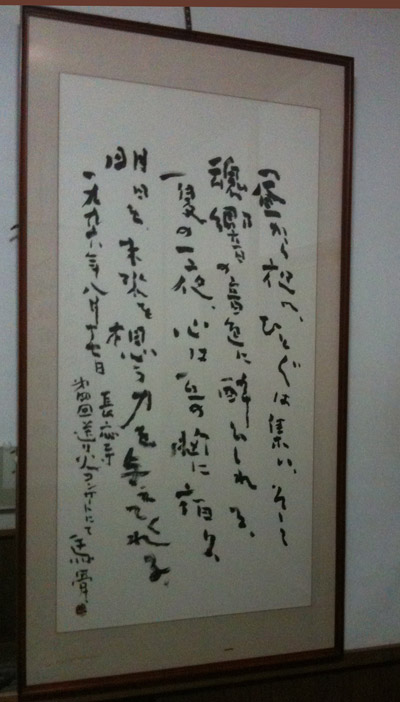 昼から夜へ、ひとびとは集い、そして
魂響の音色に酔いしれる、
の一夜、心は互の胸に宿り、
明日を、未来を想う力を与えてくれる。
一九九六年八月十七日
長応寺
第四回送り火コンサートにて